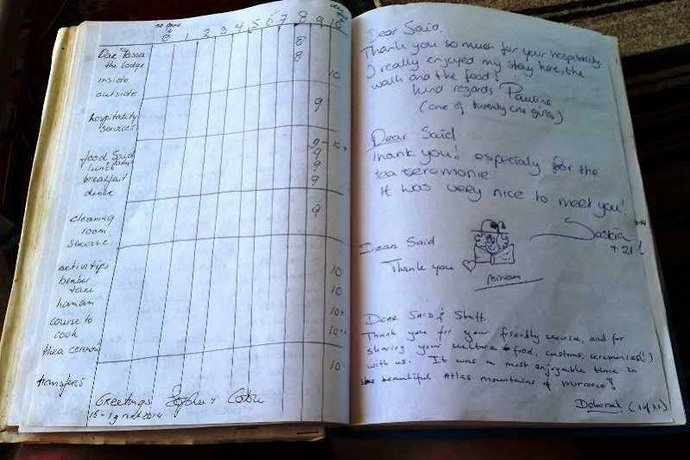 0 1 2 3 4 5 6 7 8 9 10
Dar Tassa 8
the lodge 8
inside 10
outside
hospitality 9
services
food Said 9 - 10
lunch 9
breakfast 9
diner 9
cleaning 9
room
service
activities 10
berber
taxi 10
hamam 10
course to 10
cook
thea ceremony 10
transfers
Greetings
Dear Said,
Thank you so much for your hospitality
I really enjoyed my stay here, the
walk and the food!
Kind regards Pauline
(one of twenty one girls)
Dear Saïd
Thank you! especialy for the
tea ceremonie
It was very nice to meet you!
Saskia
Dear Said
Thank you
Miriam
Dear Said & Staff
Thank you for your friendly service, and for
sharing your culture & food, customs, ceremonies(!)
with us. It was a most enjoyable time in
the beautiful Atlas mountains of Morocco!
Deborah (1 of 21)